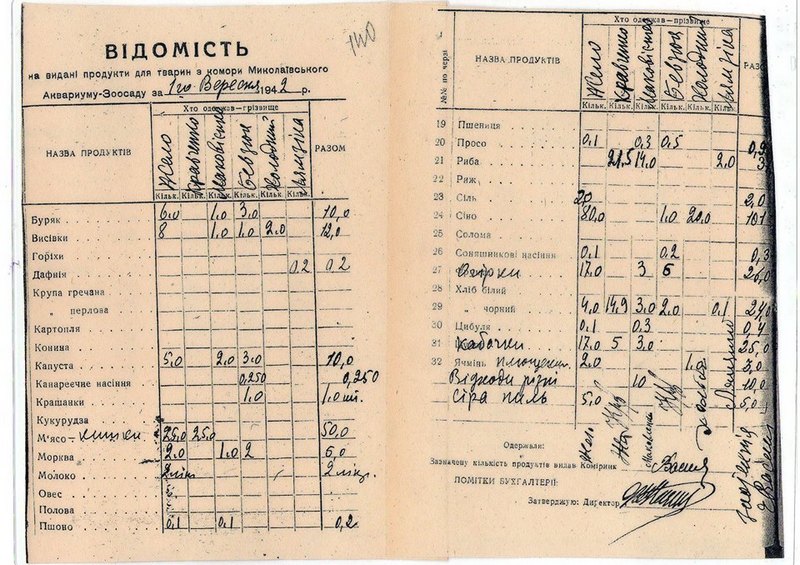 140
ВІДОМІСТЬ
на видані продукти для тварин з комори Миколаївського
Аквариуму-Зоосаду за 1го Вересня 1942 р.
НАЗВА ПРОДУКТІВ Хто одержав—грізвище РАЗОМ
Жело Кравченко Маковієнко Бевзюк Холодний
Кільк. Кільк. Кільк. Кільк. Кільк. Кільк.
Буряк 6.0 1.0 3.0 10,0
Висівки 8 1.0 1.0 2.0 12,0
Горіхи
Дафнія 0.2 0.2
Крупа гречана
„ перлова
Картопля
Конина
Капуста 5.0 2.0 3.0 10,0
Канареечне насіння 0,250 0,250
Крашанки 1.0 1.0 шт.
Кукурудза
М'ясо- кишки 25.0 25.0 50,0
Морква 2.0 1.0 2 5,0
Молоко 2 літ 2 літ.
Овес
Полова
Пшоно 0.1 0.1 0,2
№№ по черзі НАЗВА ПРОДУКТІВ Хто одержав—прізвище РАЗОМ
Жело Кравченко Маковієнко Бевзюк Холодний
Кільк. Кільк. Кільк. Кільк. Кільк. Кільк.
19 Пшениця
20 Просо 0.1 0.3 0.5 0,9
21 Риба 21,5 14.0 2.0
22 Риж
23 Сіль 20 2,0
24 Сіно 80,0 1.0 20.0 101
25 Солома
26 Соняшникові насіння 0.1 0.2 0,3
27 Огірки 17.0 3 6 26,0
28 Хліб білий
29 „ чорний 4.0 14,9 3.0 2.0 0.1
30 Цибуля 0.1 0.3 0,4
31 Кабачки 17.0 5 3.0 25,0
32 Ячмінь 2.0 1. 3,0
Відходи різні 10 10,0
Сіра паль 5.0 5,0
Одержали:
Зазначену кількість продуктів видав Комірник
ПОМІТКИ БУХГАЛТЕРІЇ:
Затверджую: Директор